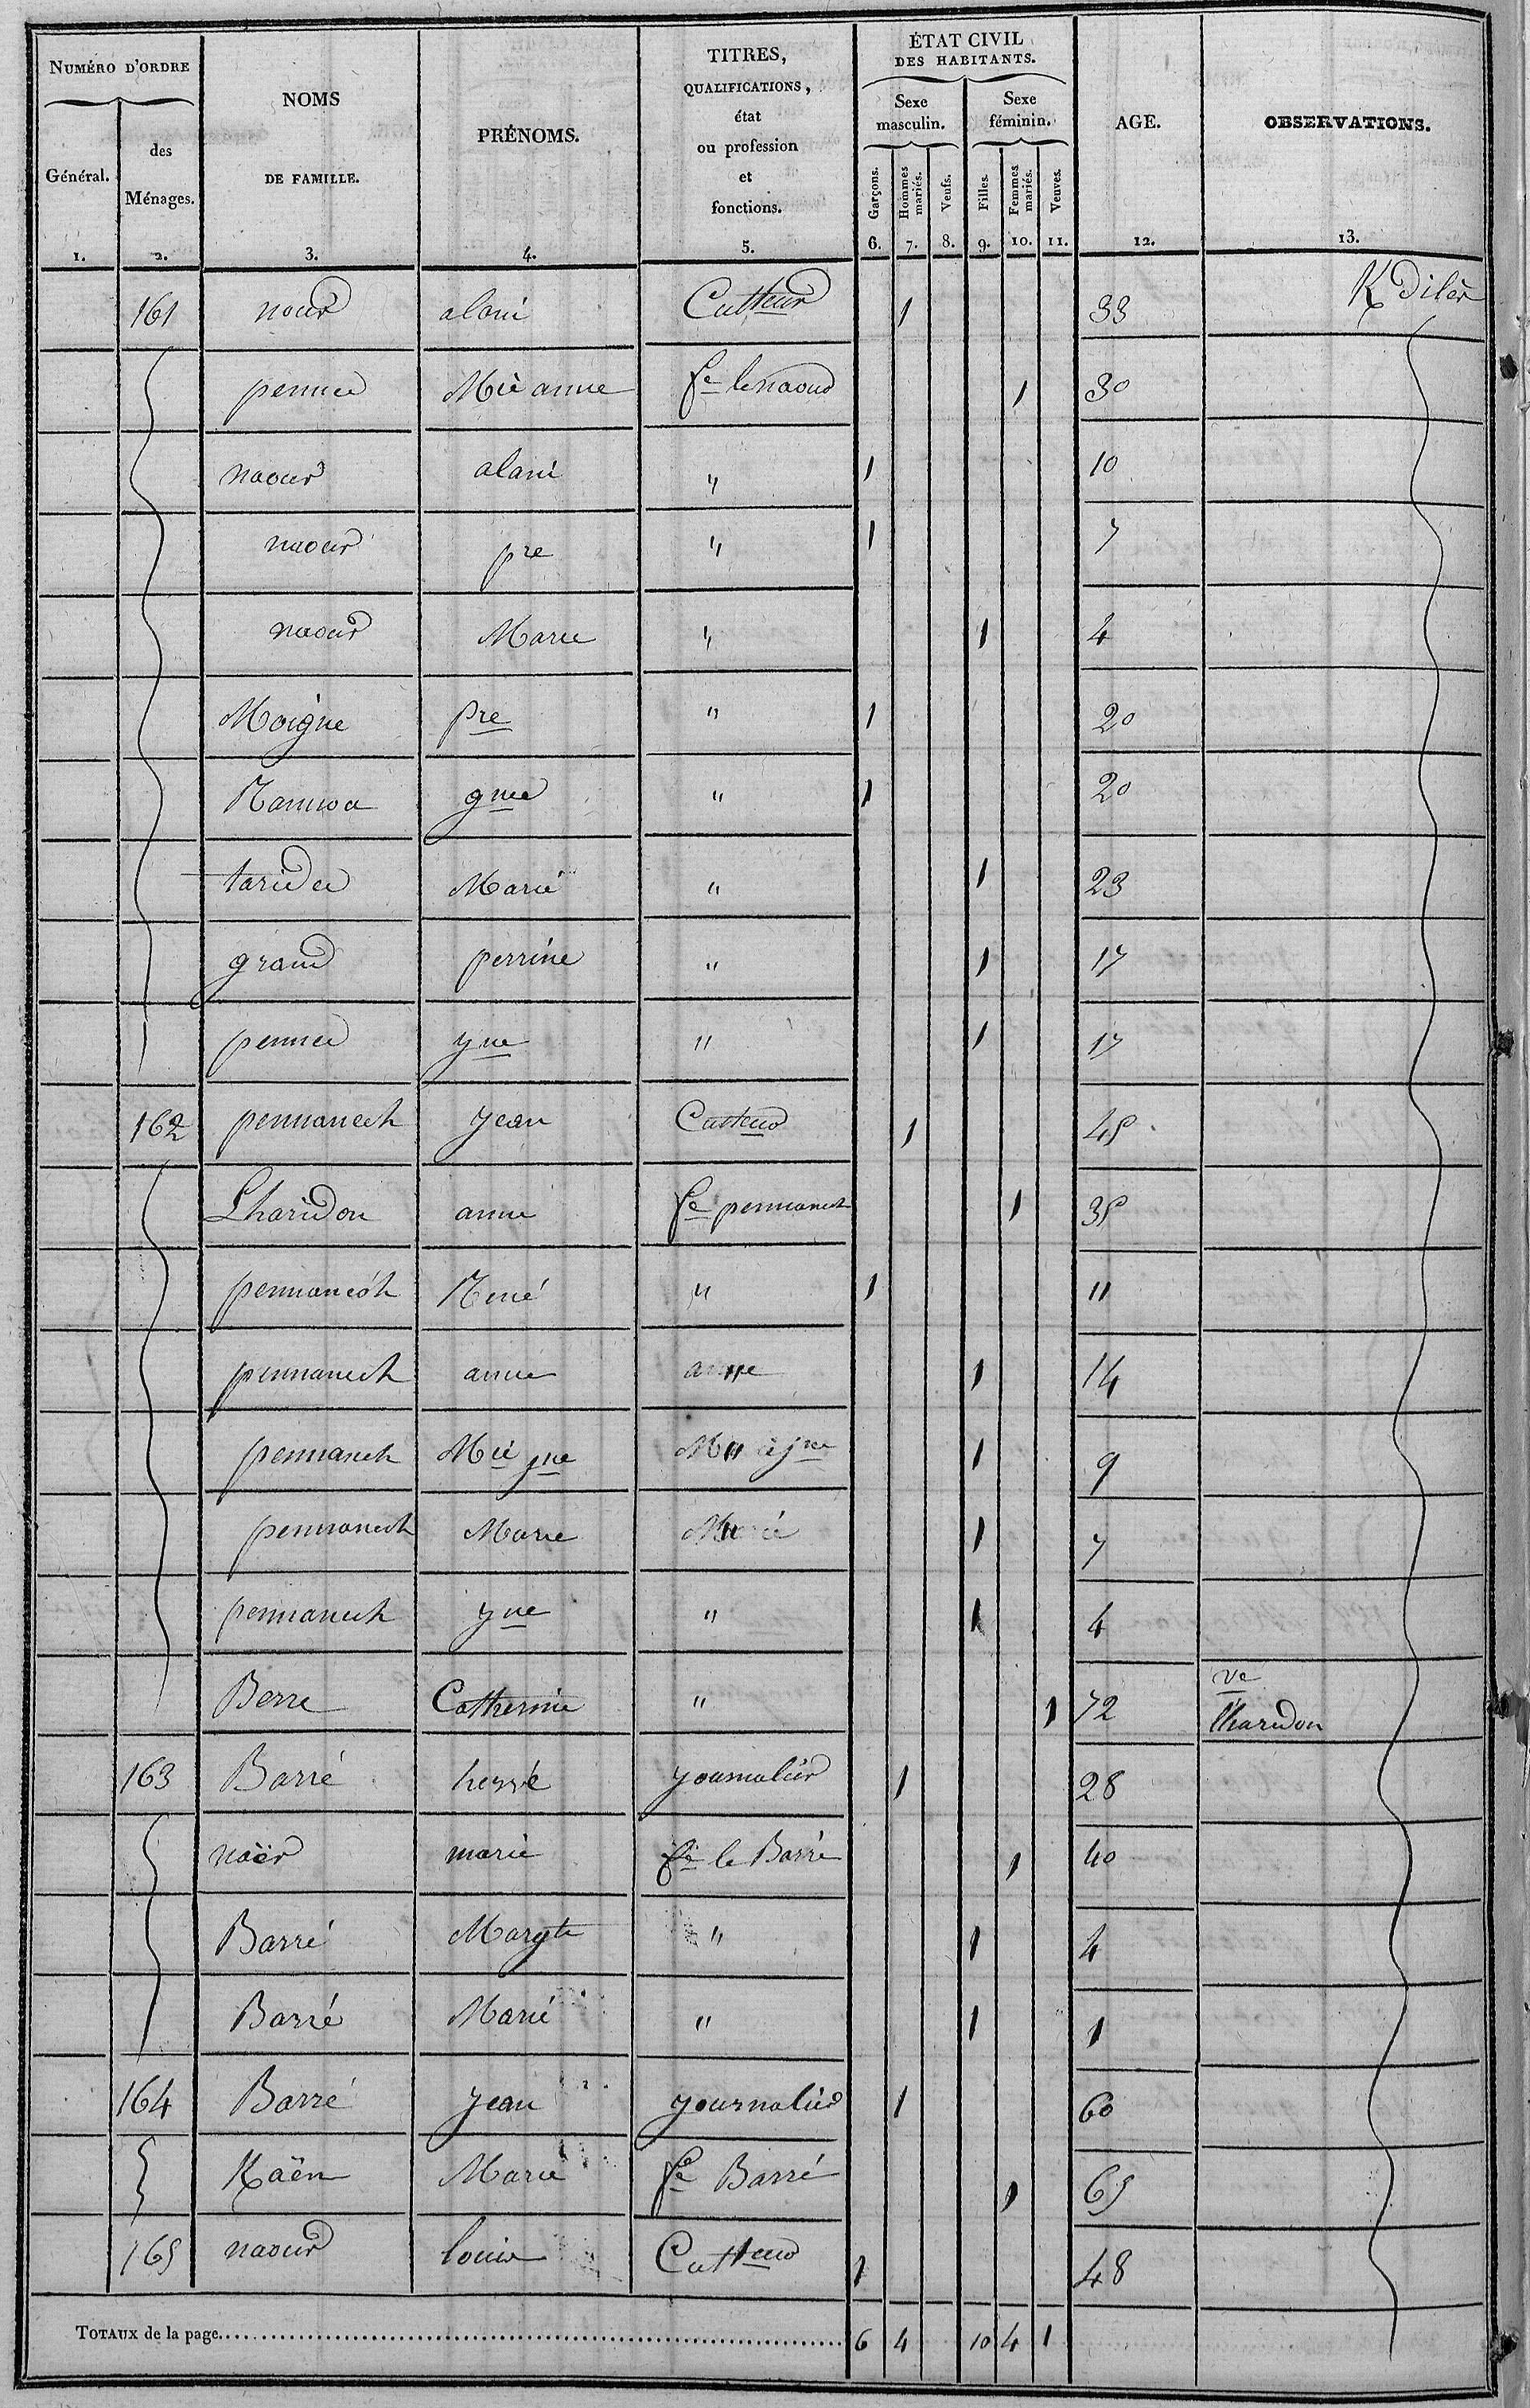 NUMÉRO D'ORDRE
Général.
des
Ménages.
NOMS
DE FAMILLE.
PRÉNOMS.
TITRES,
QUALIFICATIONS,
état
ou profession
et
fonctions.
ÉTAT CIVIL
DES HABITANTS.
Sexe
masculin.
Sexe
féminin.
Garçons.
Hommes
mariés.
Veufs.
Filles.
Femmes
mariés.
Veuves.
AGE.
OBSERVATIONS.
1. 2. 3. 4. 5. 6. 7. 8. 9. 10. 11. 12. 13.
161 nour alain Cultteur 1 33 K diler
pennec Mie anne fe lenaour 1 30
naour alain " 1 10
naour pre " 1 7
naour Marie " 1 4
Moigne pre " 1 20
gme " 1 20
taridec Marie " 1 23
grand perrine " 1 17
pennec yne " 1 17
162 pennanech jean Cultteur 1 45
Lharidon anne fe pennanech 1 35
pennanech René " 1 11
pennanech anne " 1 14
pennanech Mie jne " 1 9
pennanech Marie " 1 7
pennanech yne " 1 4
Berre Catherine " 1 72 ve
lharidon
163 Barré hervé journalier 1 28
naër marie fe le Barré 1 40
Barré Margte " 1 4
Barré Marie " 1 1
164 Barré jean journalier 1 60
Kaën Marie fe Barré 1 65
165 naour louis Cultteur 1 48
TOTAUX de la page 6 4 10 4 1